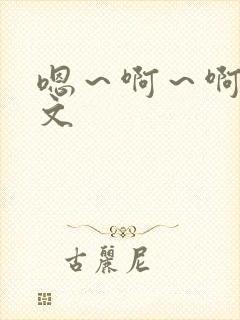 嗯～啊～啊
文
古丽尼